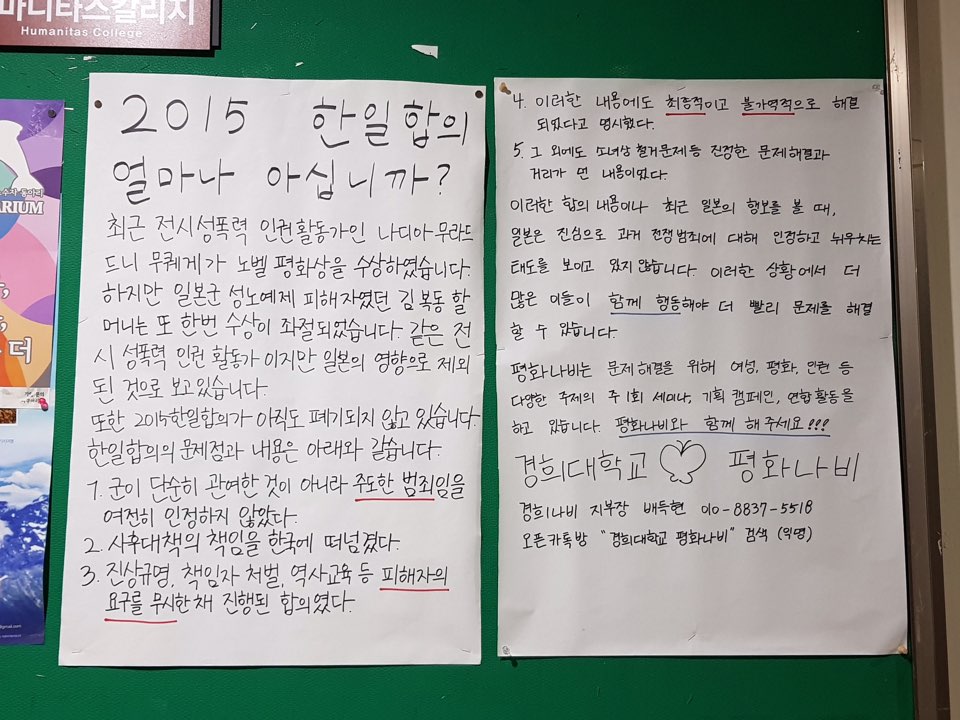 마니타스칼리지
Humanitas College
ARIUM
더
2015 한일합의
얼마나 아십니까?
최근 전시성폭력 인권활동가인 나디아 무라드
드니 무퀘게가 노벨 평화상을 수상하였습니다.
하지만 일본군 성노예제 피해자였던 김복동 할
머니는 또 한번 수상이 좌절되었습니다. 같은 전
시 성폭력 인권 활동가 이지만 일본의 영향으로 제외
된 것으로 보고있습니다.
또한 2015한일합의가 아직도 폐기되지 않고 있습니다.
한일합의의 문제점과 내용은 아래와 같습니다.
1. 군이 단순히 관여한 것이 아니라 주도한 범죄임을
여전히 인정하지 않았다.
2. 사후대책의 책임을 한국에 떠넘겼다.
3. 진상규명, 책임자 처벌, 역사교육 등 피해자의
요구를 무시한채 진행된 합의였다.
4. 이러한 내용에도 최종적이고 불가역적으로 해결
되었다고 명시했다.
5. 그 외에도 소녀상 철거문제 등 진정한 문제해결과
거리가 먼 내용이었다.
이러한 합의 내용이나 최근 일본의 행보를 볼 때,
일본은 진심으로 과거 전쟁범죄에 대해 인정하고 뉘우치는
태도를 보이고 있지 않습니다. 이러한 상황에서 더
많은 이들이 함께 행동해야 더 빨리 문제를 해결
할 수 있습니다.
평화나비는 문제 해결을 위해 여성, 평화, 인권 등
다양한 주제의 주1회 세미나, 기획 캠페인, 연합활동을
하고 있습니다. 평화나비와 함께 해주세요!!!
경희대학교 평화나비
경희나비 지부장 배득현 010-8837-5518
오픈카톡방 "경희대학교 평화나비" 검색 (익명)